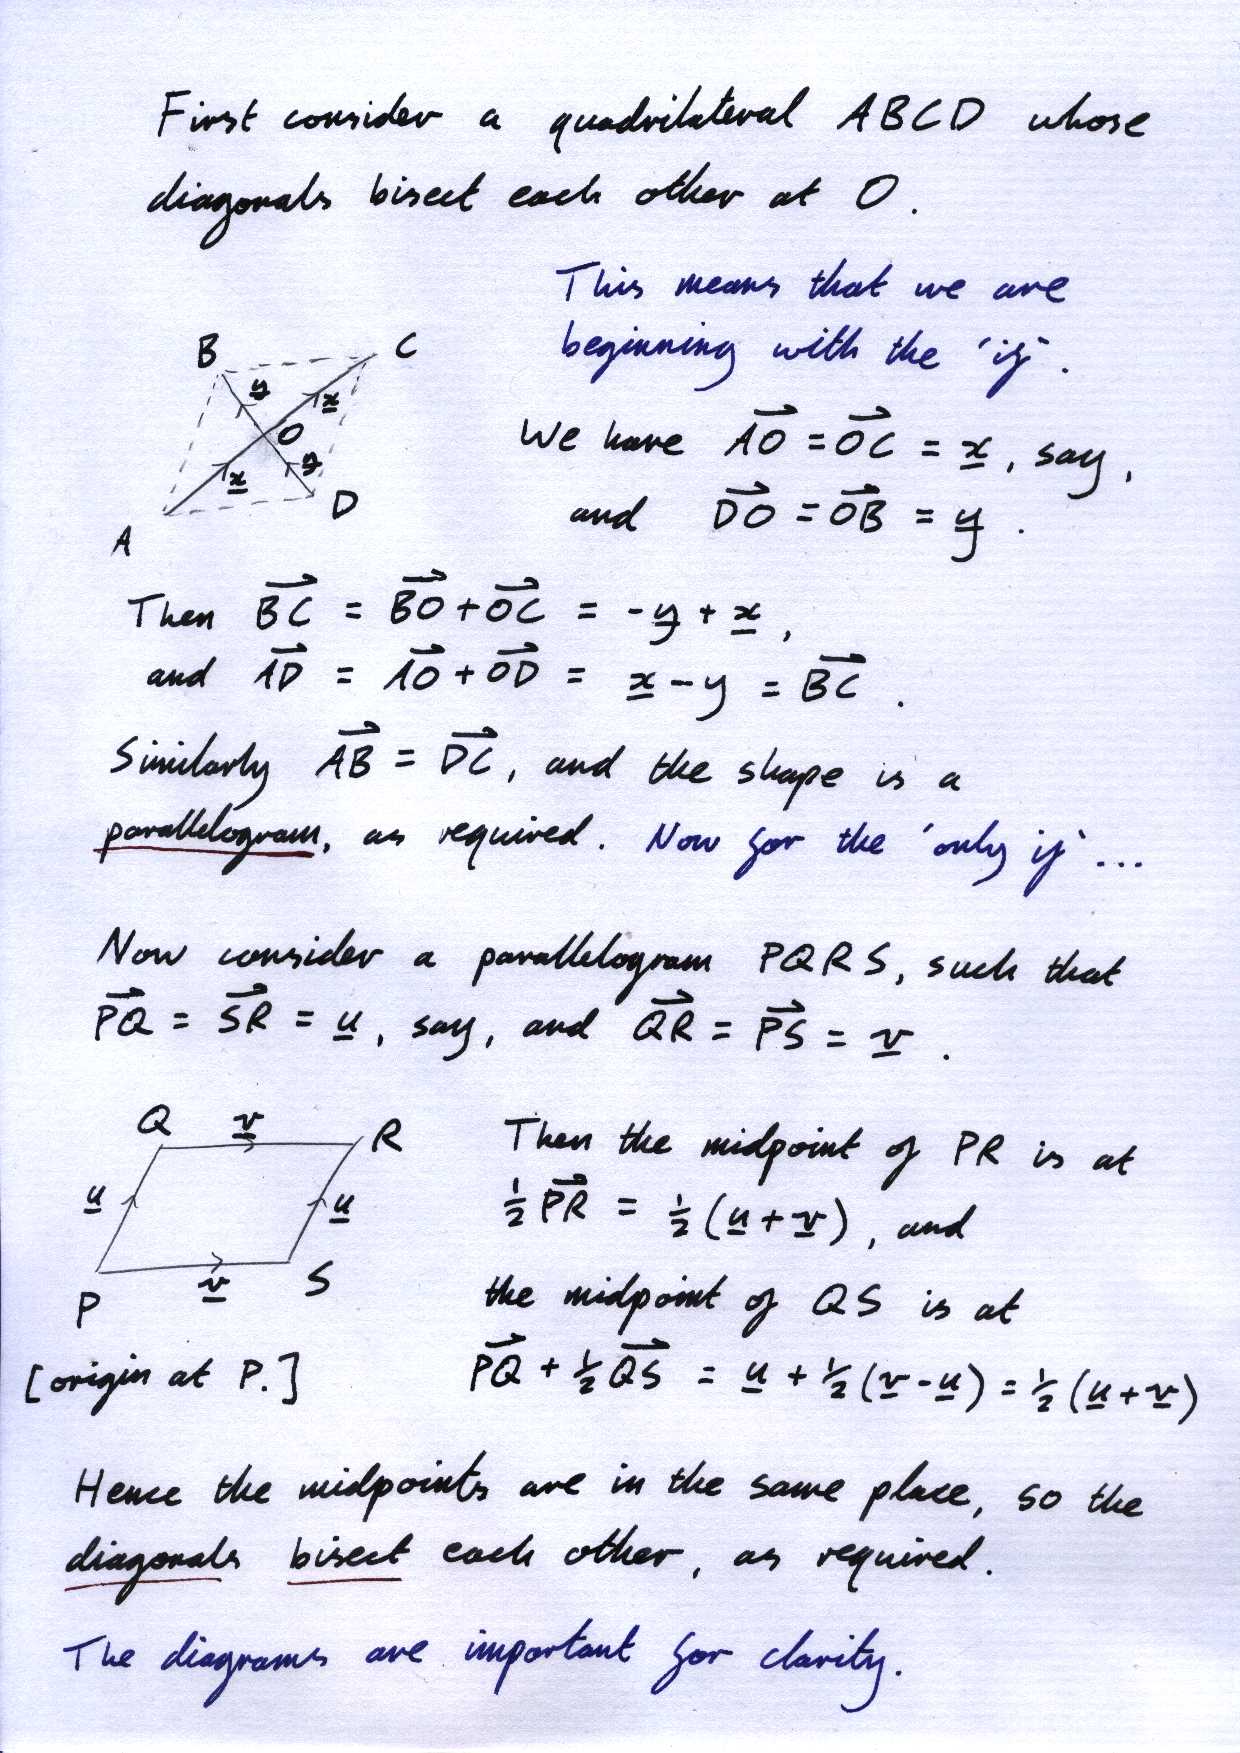 First consider a quadrilateral ABCD whose
diagonals bisect each other at O.
This means that we are
beginning with the 'if'.
B
C
y
x
O
y
x
D
A
We have AO→ = OC→ = x, say,
and DO→ = OB→ = y.
Then BC→ = BO→ + OC→ = -y + x,
and AD→ = AO→ + OD→ = x - y = BC→.
Similarly AB→ = DC→, and the shape is a
parallelogram, as required. Now for the 'only if'...
Now consider a parallelogram PQRS, such that
PQ→ = SR→ = u, say, and QR→ = PS→ = v.
Q
v
R
u
u
P
v
S
[origin at P.]
Then the midpoint of PR is at
½ PR→ = ½ (u + v), and
the midpoint of QS is at
PQ→ + ½ QS→ = u + ½ (v - u) = ½ (u + v)
Hence the midpoints are in the same place, so the
diagonals bisect each other, as required.
The diagrams are important for clarity.